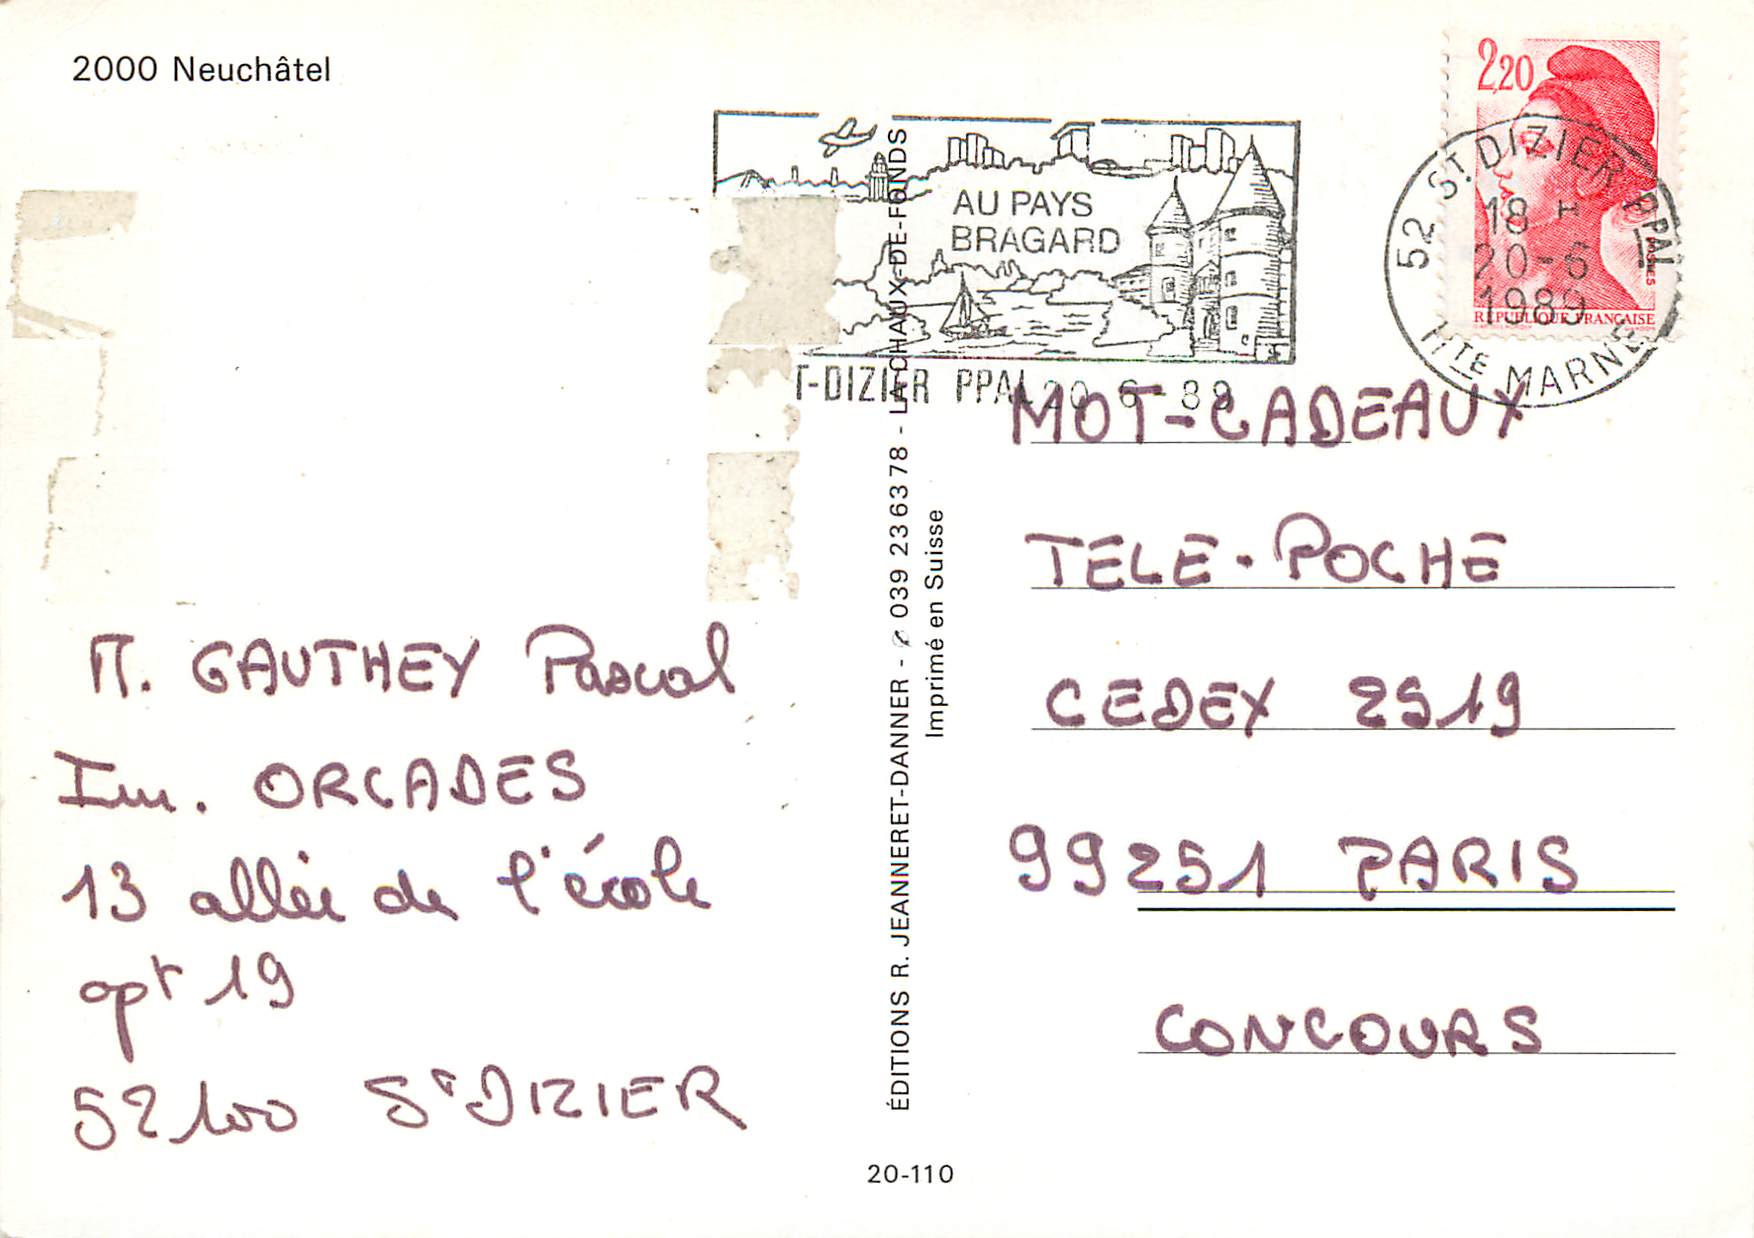 2000 Neuchâtel
2,20
52 ST. DIZIER PPAL
18 H
20-6
1989
HTE MARNE
POSTES
REPUBLIQUE FRANÇAISE
AU PAYS
BRAGARD
T-DIZIER PPAL 20 6 - 89
MOT-CADEAUX
TELE-POCHE
CEDEX 2519
99251 PARIS
CONCOURS
M. GAUTHEY Pascal
Im. ORCADES
13 allée de l'école
apt 19
52100 St DIZIER
ÉDITIONS R. JEANNERET-DANNER - ✆ 039 23 63 78 - LA CHAUX-DE-FONDS
Imprimé en Suisse
20-110